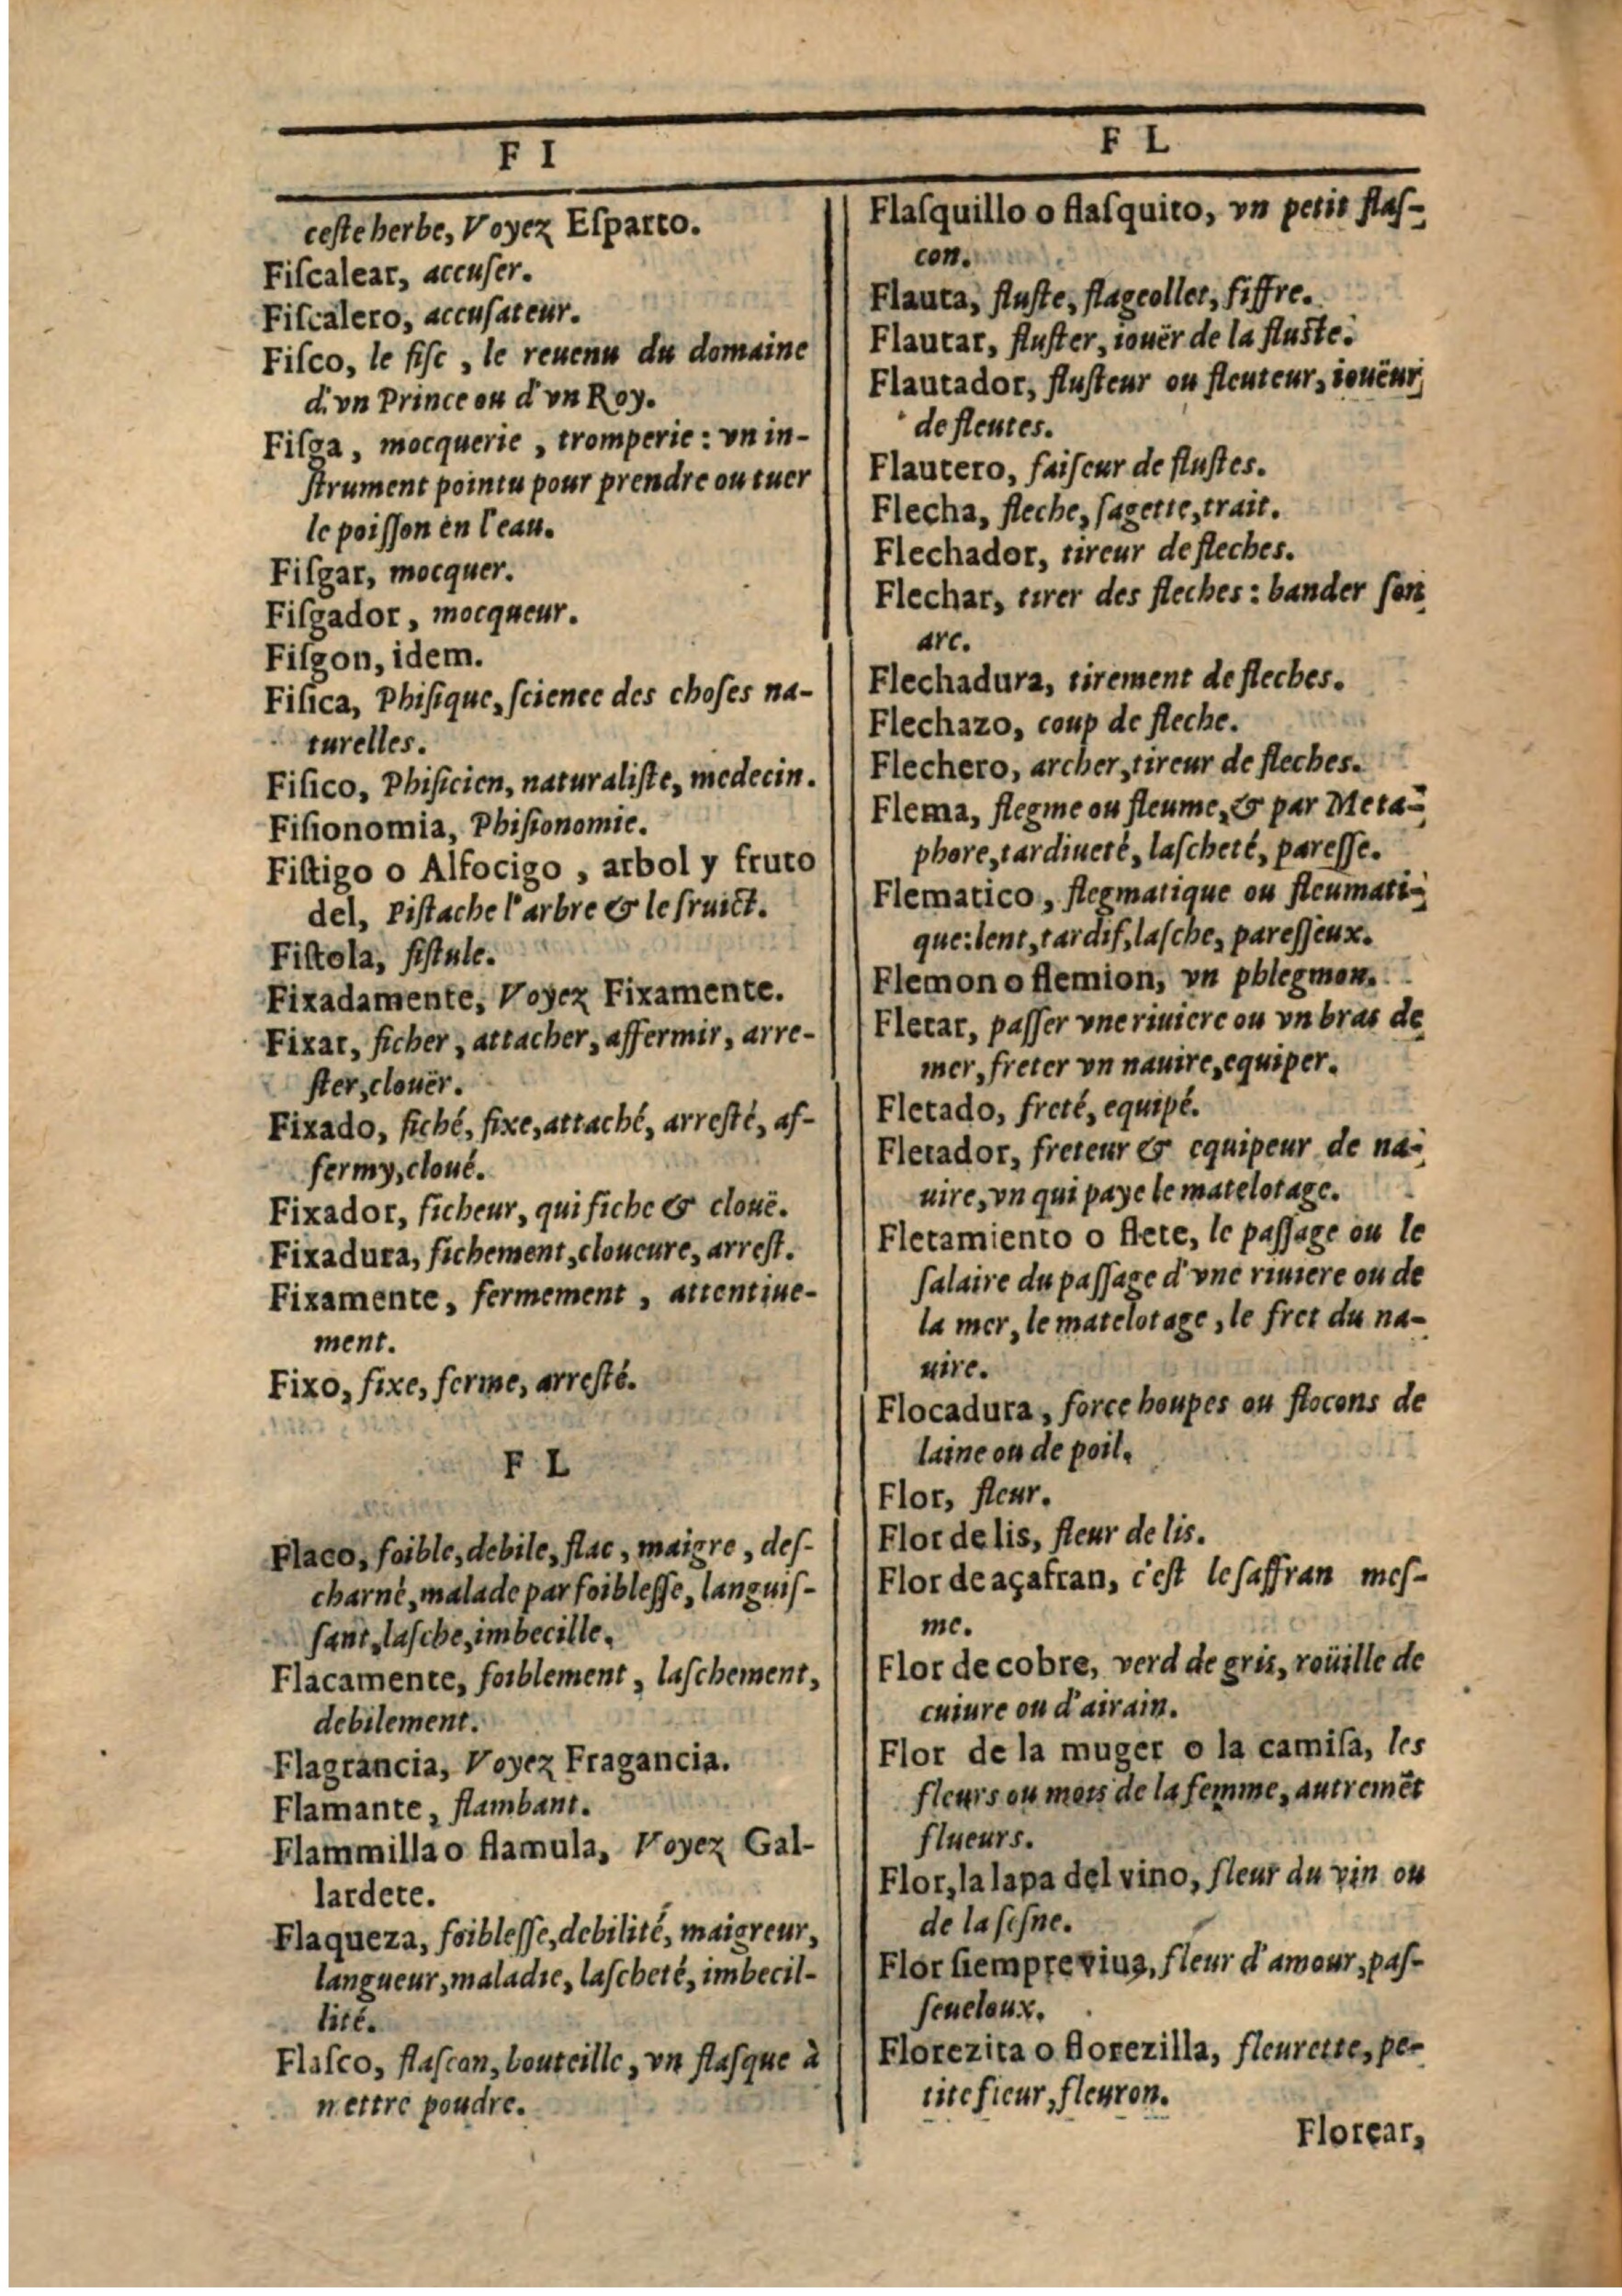 F I
ceſte herbe, Voyez Eſparto.
Fiſcalear, accuſer.
Fiſcalero, accuſateur.
Fiſco, le fiſc, le reuenu du domaine
d'vn Prince ou d'vn Roy.
Fiſga, mocquerie, tromperie: vn in-
ſtrument pointu pour prendre ou tuer
le poiſſon en l'eau.
Fiſgar, mocquer.
Fiſgador, mocqueur.
Fiſgon, idem.
Fiſica, Phiſique, ſcience des choſes na-
turelles.
Fiſico, Phiſicien, naturaliſte, medecin.
Fiſionomia, Phiſionomie.
Fiſtigo o Alfocigo, arbol y fruto
del, Piſtache l'arbre & le fruict.
Fiſtola, fiſtule.
Fixadamente, Voyez Fixamente.
Fixar, ficher, attacher, affermir, arre-
ſter, clouër.
Fixado, fiché, fixe, attaché, arreſté, af-
fermy, cloué.
Fixador, ficheur, qui fiche & clouë.
Fixadura, fichement, cloueure, arreſt.
Fixamente, fermement, attentiue-
ment.
Fixo, fixe, ferme, arreſté.
F L
Flaco, foible, debile, flac, maigre, deſ-
charné, malade par foibleſſe, languiſ-
ſant, laſche, imbecille.
Flacamente, foiblement, laſchement,
debilement.
Flagrancia, Voyez Fragancia.
Flamante, flambant.
Flammilla o flamula, Voyez Gal-
lardete.
Flaqueza, foibleſſe, debilité, maigreur,
langueur, maladie, laſcheté, imbecil-
lité.
Flaſco, flaſcon, bouteille, vn flaſque à
mettre poudre.
F L
Flaſquillo o flaſquito, vn petit flaſ-
con.
Flauta, fluſte, flageollet, fiffre.
Flautar, fluſter, iouër de la fluſte.
Flautador, fluſteur ou fleuteur, iouëur
de fleutes.
Flautero, faiſeur de fluſtes.
Flecha, fleche, ſagette, trait.
Flechador, tireur de fleches.
Flechar, tirer des fleches: bander ſon
arc.
Flechadura, tirement de fleches.
Flechazo, coup de fleche.
Flechero, archer, tireur de fleches.
Flema, flegme ou fleume, & par Meta-
phore, tardiueté, laſcheté, pareſſe.
Flematico, flegmatique ou fleumati-
que: lent, tardif, laſche, pareſſeux.
Flemon o flemion, vn phlegmon.
Fletar, paſſer vne riuiere ou vn bras de
mer, freter vn nauire, equiper.
Fletado, freté, equipé.
Fletador, freteur & equipeur de na-
uire, vn qui paye le matelotage.
Fletamiento o flete, le paſſage ou le
ſalaire du paſſage d'vne riuiere ou de
la mer, le matelotage, le fret du na-
uire.
Flocadura, force houpes ou flocons de
laine ou de poil.
Flor, fleur.
Flor de lis, fleur de lis.
Flor de açafran, c'eſt le ſaffran meſ-
me.
Flor de cobre, verd de gris, roüille de
cuiure ou d'airain.
Flor de la muger o la camiſa, les
fleurs ou mois de la femme, autremẽt
flueurs.
Flor, la lapa del vino, fleur du vin ou
de la ſeſne.
Flor ſiempre viua, fleur d'amour, paſ-
ſeueloux.
Florezita o florezilla, fleurette, pe-
tite fleur, fleuron.
Florear,